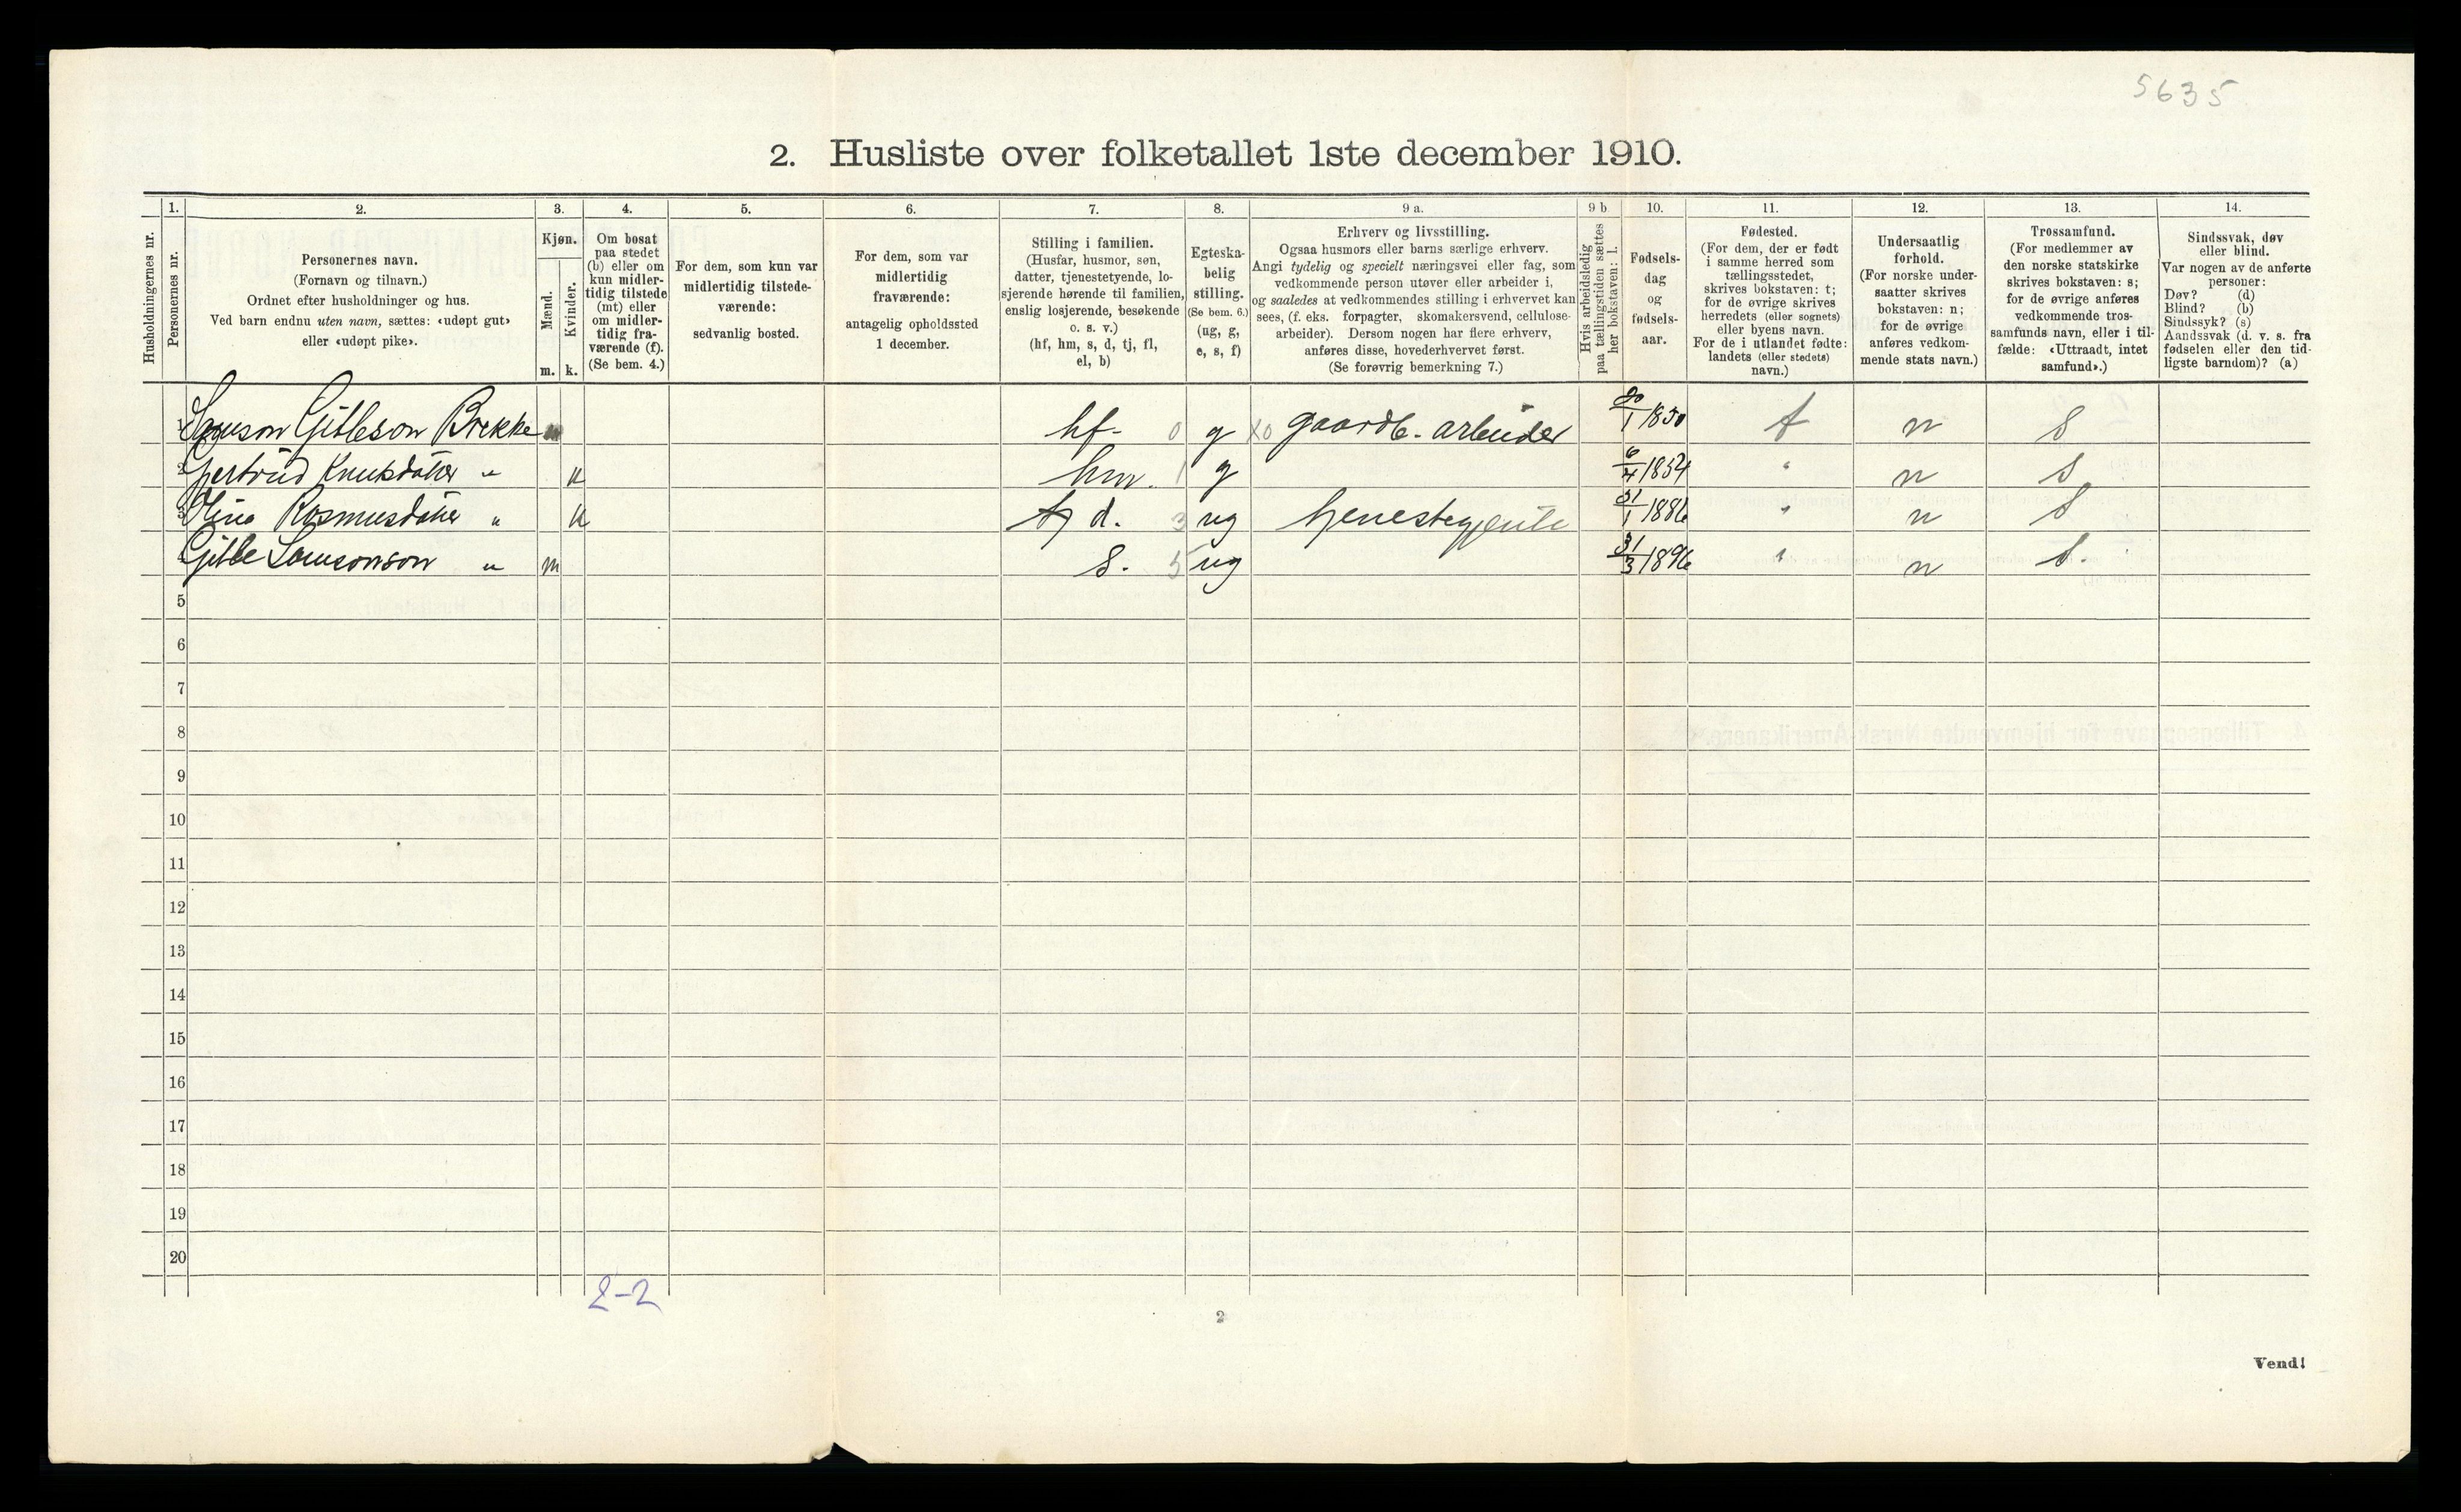 5635
2. Husliste over folketallet 1ste december 1910.
Husholdningernes nr.
1.
Personernes nr.
2.
Personernes navn.
(Fornavn og tilnavn.)
Ordnet efter husholdninger og hus.
Ved barn endnu uten navn, sættes: «udøpt gut»
eller «udøpt pike».
3.
Kjøn.
Mænd.
Kvinder.
m.
k.
4.
Om bosat
paa stedet
(b) eller om
kun midler-
tidig tilstede
(mt) eller
om midler-
tidig fra-
værende (f).
(Se bem. 4.)
5.
For dem, som kun var
midlertidig tilstede-
værende:
sedvanlig bosted.
6.
For dem, som var
midlertidig
fraværende:
antagelig opholdssted
1 december.
7.
Stilling i familien.
(Husfar, husmor, søn,
datter, tjenestetyende, lo-
sjerende hørende til familien,
enslig losjerende, besøkende
o. s. v.)
(hf, hm, s, d, tj, fl,
el, b)
8.
Egteska-
belig
stilling.
(Se bem. 6.)
(ug, g,
e, s, f)
9 a.
Erhverv og livsstilling.
Ogsaa husmors eller barns særlige erhverv.
Angi tydelig og specielt næringsvei eller fag, som
vedkommende person utøver eller arbeider i,
og saaledes at vedkommendes stilling i erhvervet kan
sees, (f. eks. forpagter, skomakersvend, cellulose-
arbeider). Dersom nogen har flere erhverv,
anføres disse, hovederhvervet først.
(Se forøvrig bemerkning 7.)
9 b
Hvis arbeidsledig
paa tællingstiden sættes
her bokstaven: l.
10.
Fødsels-
dag
og
fødsels-
aar.
11.
Fødested.
(For dem, der er født
i samme herred som
tællingsstedet,
skrives bokstaven: t;
for de øvrige skrives
herredets (eller sognets)
eller byens navn.
For de i utlandet fødte:
landets (eller stedets)
navn.)
12.
Undersaatlig
forhold.
(For norske under-
saatter skrives
bokstaven: n;
for de øvrige
anføres vedkom-
mende stats navn.)
13.
Trossamfund.
(For medlemmer av
den norske statskirke
skrives bokstaven: s;
for de øvrige anføres
vedkommende tros-
samfunds navn, eller i til-
fælde: «Uttraadt, intet
samfund».)
14.
Sindssvak, døv
eller blind.
Var nogen av de anførte
personer:
Døv? (d)
Blind? (b)
Sindssyk? (s)
Aandssvak (d. v. s. fra
fødselen eller den tid-
ligste barndom)? (a)
1 Samson Gitleson Brekke m hf- 0 g X0 gaardb. arbeider 20/1 1850 t n s
2 Gertrud Knutsdatter " k hm. 1 g 6/4 1854 " n s
3 Olina Rasmusdatter " k tj d. 3 ug tjenestegjente 31/1 1886 " n s
4 Gitle Samsonson " m s. 5 ug 31/3 1896 " n s.
5
6
7
8
9
10
11
12
13
14
15
16
17
18
19
20
2-2
2
Vend!